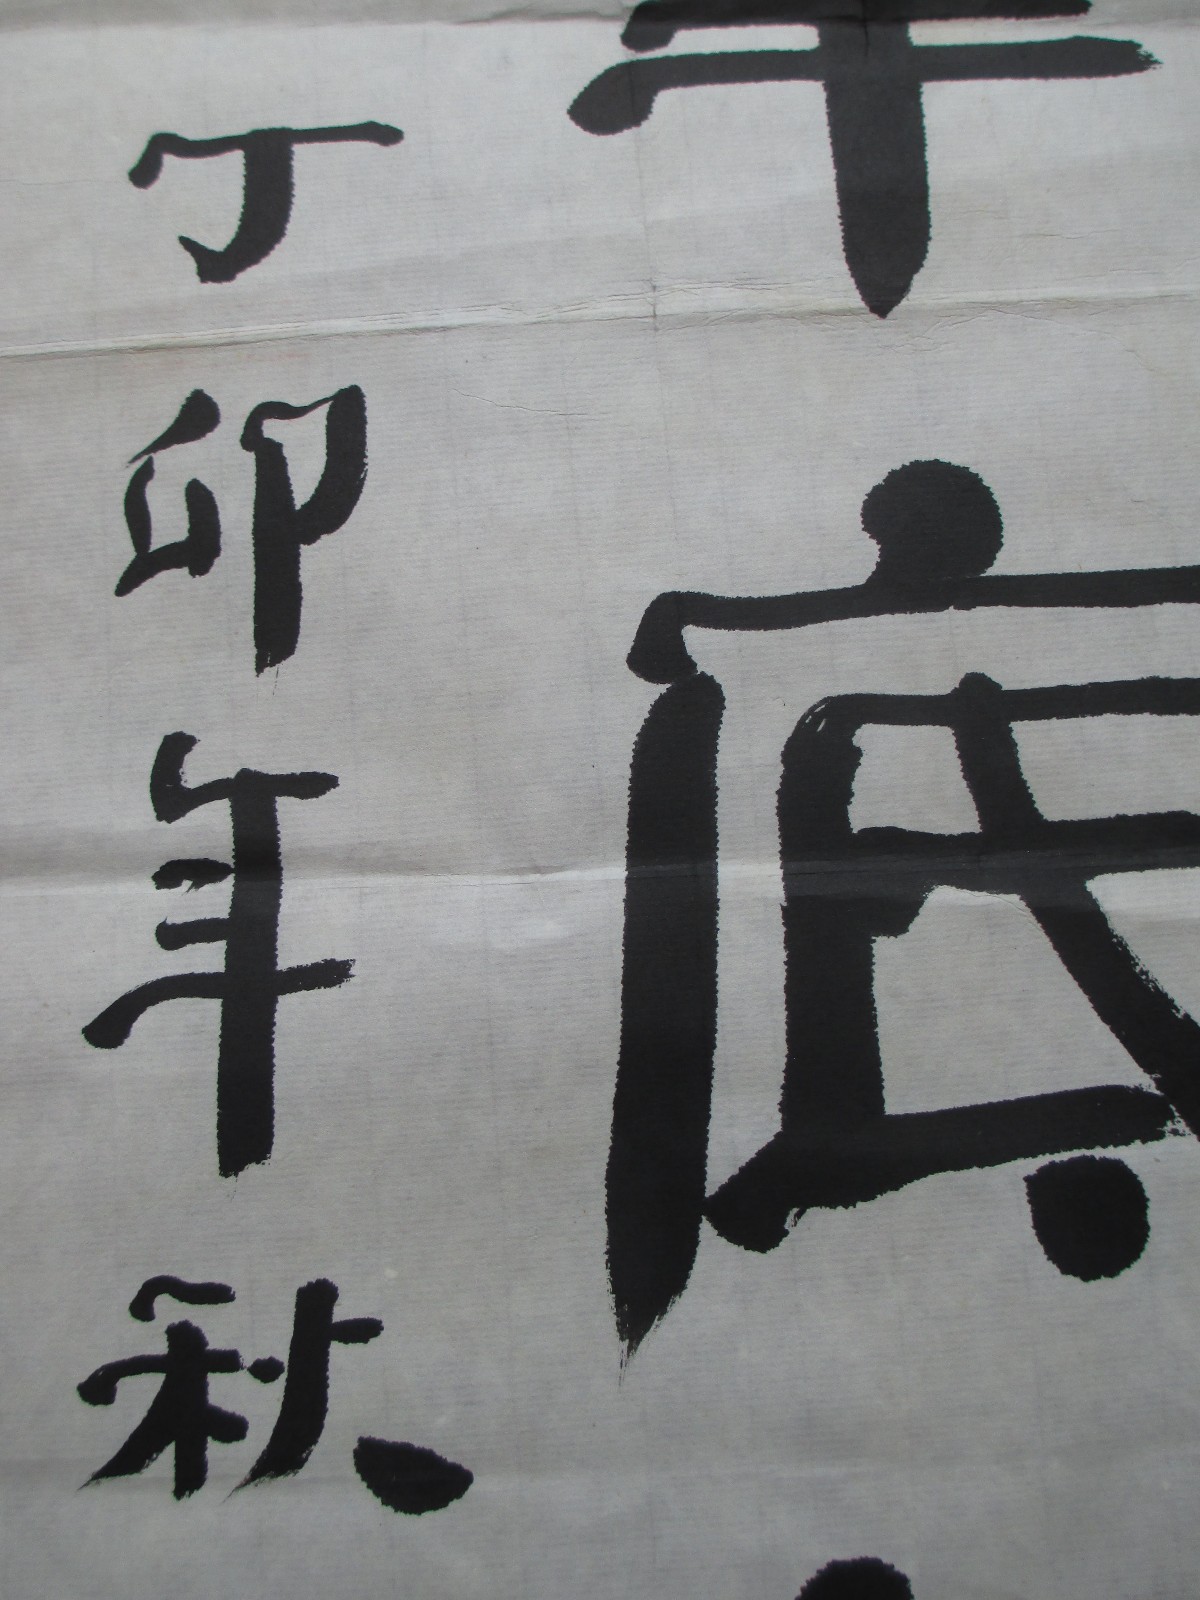 底
丁卯年秋